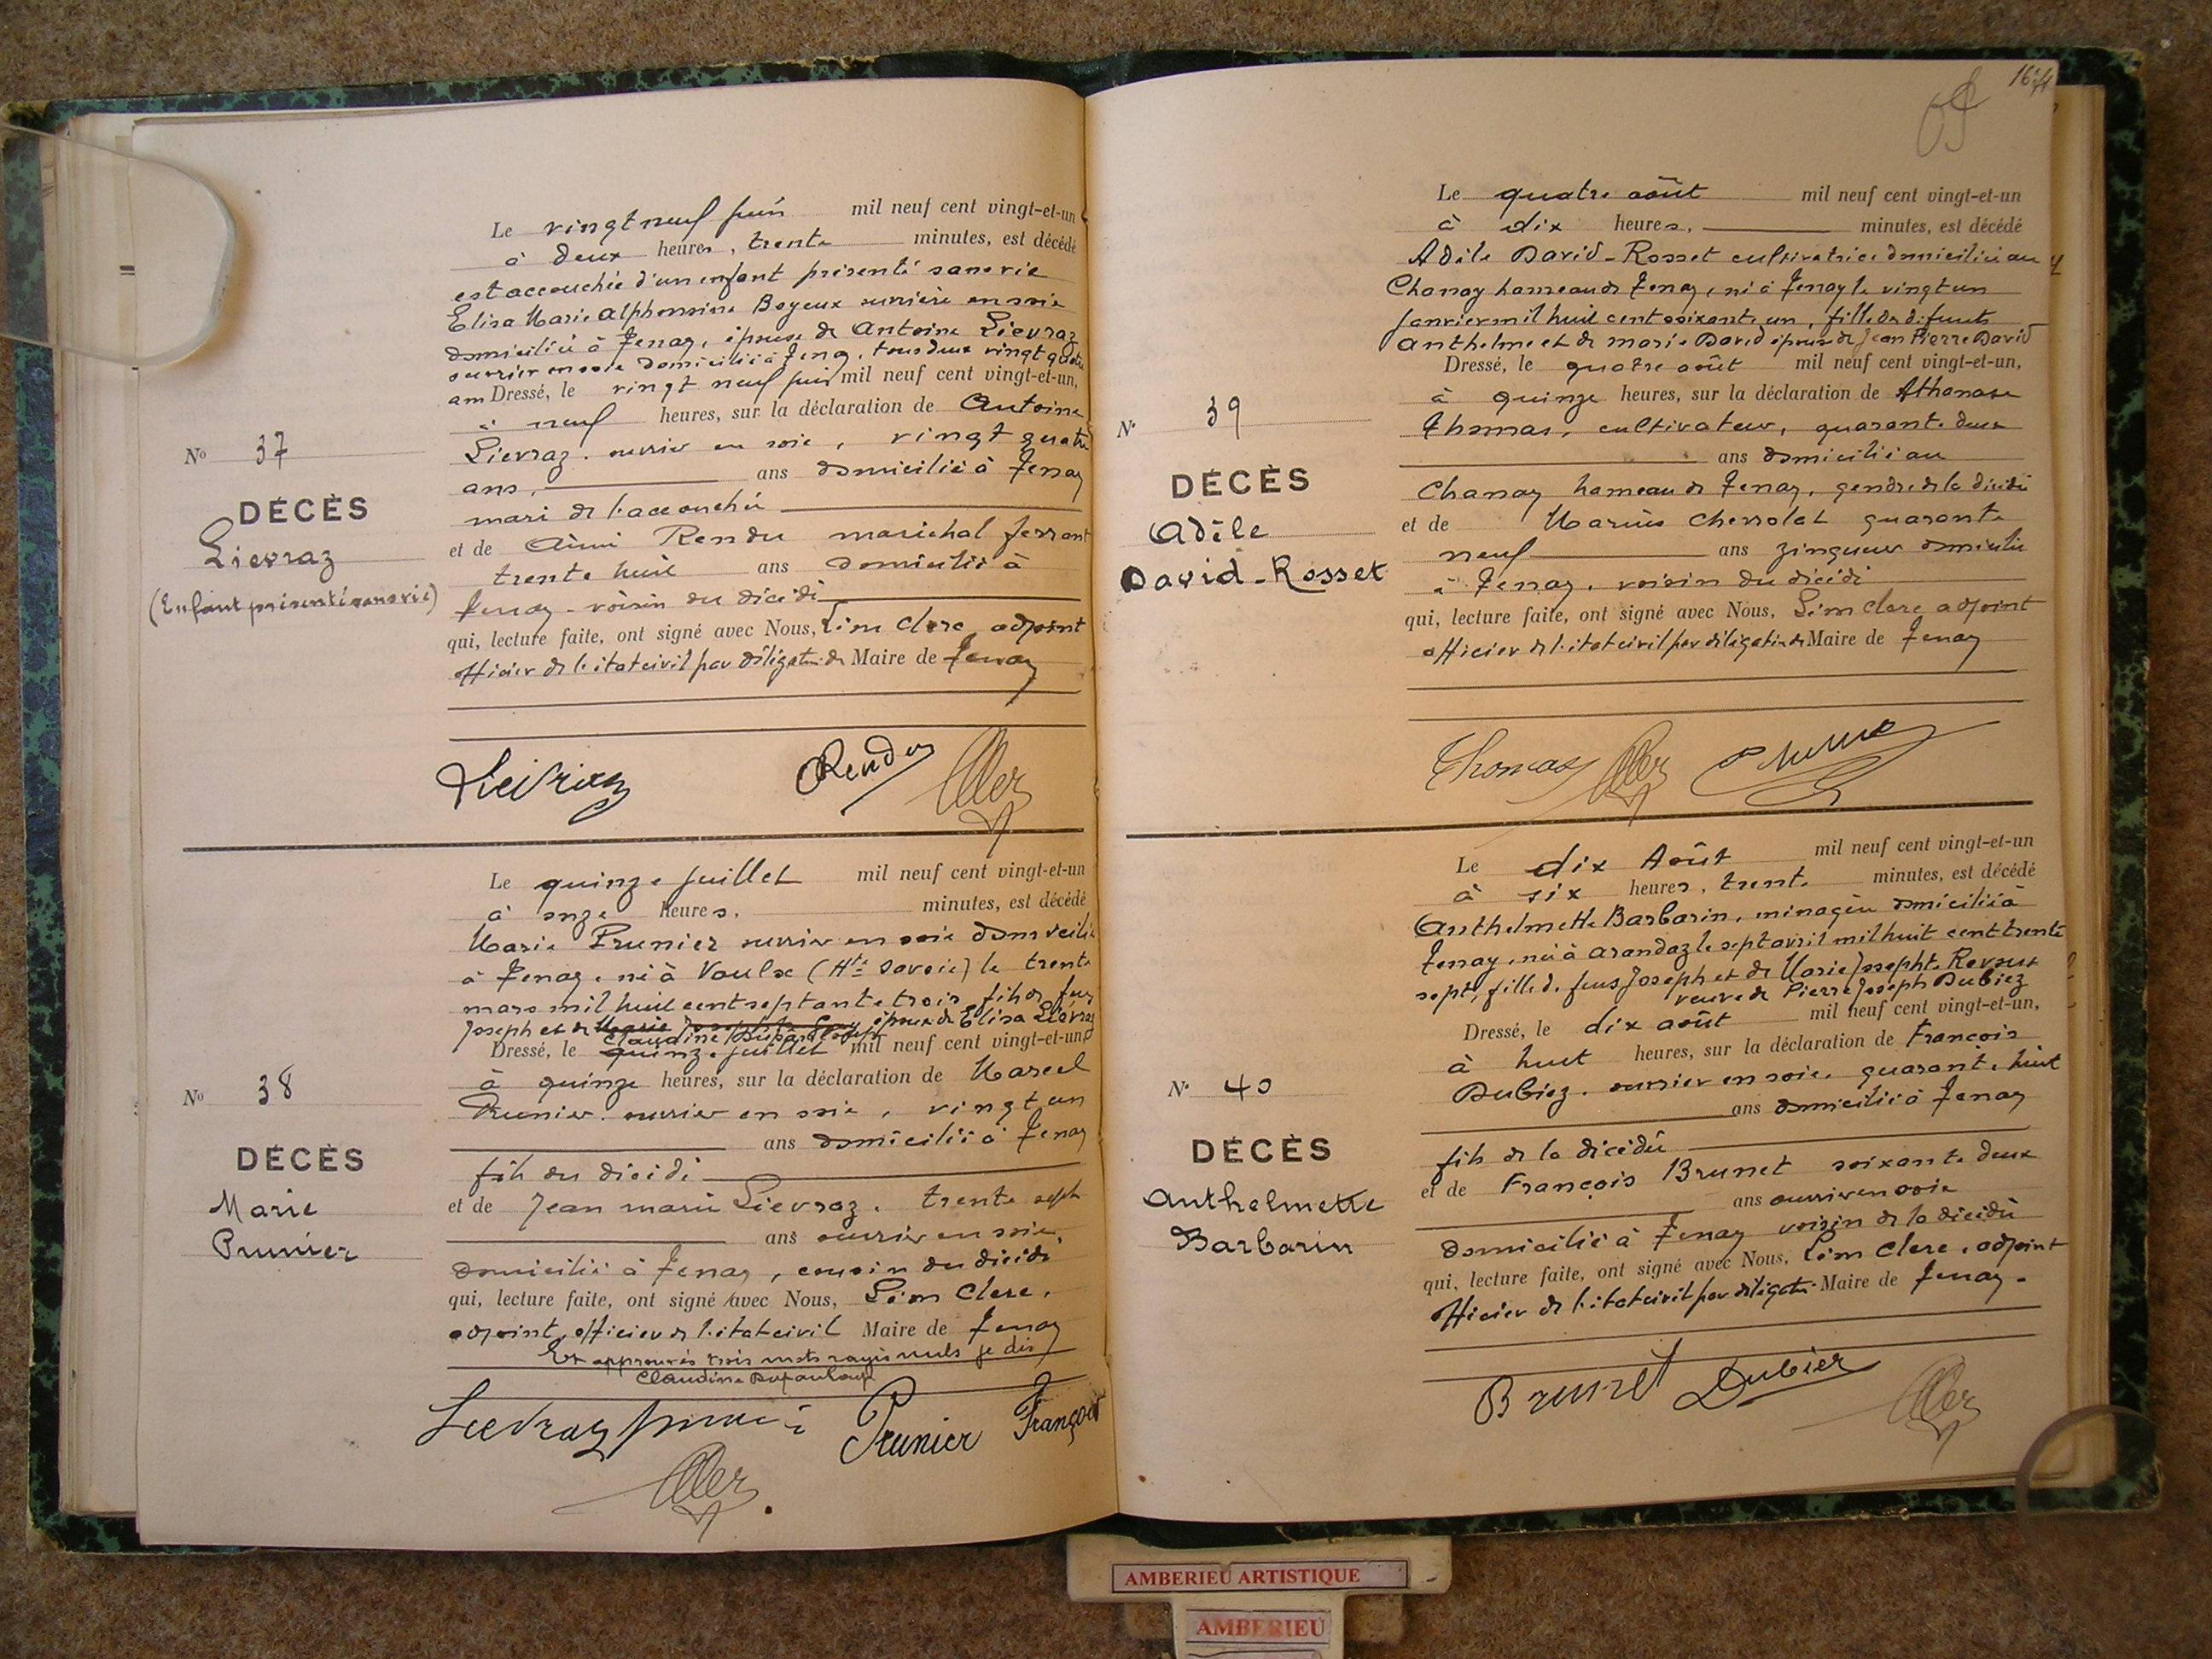 Le vingt neuf juin mil neuf cent vingt-et-un
à deux heures, trente minutes, est décédé
est accouchée d'un enfant présenté sans vie
Elisa Marie Alphonsine Boyeux ouvrière en soie
domiciliée à Tenay, épouse de Antoine Lievraz
ouvrier en soie domicilié à Tenay, tous deux vingt quatre
ans Dressé, le vingt neuf juin mil neuf cent vingt-et-un,
à neuf heures, sur la déclaration de Antoine
Lievraz, ouvrier en soie, vingt quatre
ans, ans domicilié à Tenay
mari de l'accouchée
et de Aimé Rendu maréchal ferrant
trente huit ans domicilié à
Tenay - voisin du décédé
qui, lecture faite, ont signé avec Nous, Léon Clerc adjoint
officier de l'état civil par délégation du Maire de Tenay
No 37
DÉCÈS
Lievraz
(Enfant présenté sans vie)
Lievraz Rendu
Le quinze juillet mil neuf cent vingt-et-un
à onze heures, minutes, est décédé
Marie Prunier ouvrier en soie domicilié
à Tenay, né à Vaulx (Hte Savoie) le trente
mars mil huit cent septante trois, fils de feu
Joseph et de Marie Josephte époux de Elisa Lievraz
Claudine Dupanloup
Dressé, le quinze juillet mil neuf cent vingt-et-un,
à quinze heures, sur la déclaration de Marcel
Prunier, ouvrier en soie, vingt un
ans domicilié à Tenay
fils du décédé
et de Jean marie Lievraz, trente sept
ans ouvrier en soie,
domicilié à Tenay, cousin du décédé
qui, lecture faite, ont signé avec Nous, Léon Clerc,
adjoint, officier de l'état civil Maire de Tenay
Et approuvés trois mots rayés nuls je dis
Claudine Dupanloup
No 38
DÉCÈS
Marie
Prunier
Lievraz Prunier François
16
Le quatre août mil neuf cent vingt-et-un
à dix heures, minutes, est décédé
Adèle David-Rosset cultivatrice domiciliée au
Chanay hameau de Tenay, née à Tenay le vingt un
janvier mil huit cent soixante un, fille des défunts
Anthelme et de Marie David épouse de Jean Pierre David
Dressé, le quatre août mil neuf cent vingt-et-un,
à quinze heures, sur la déclaration de Athanase
Thomas, cultivateur, quarante deux
ans domicilié au
Chanay hameau de Tenay, gendre de la décédée
et de Marius Chevrolat quarante
neuf ans zingueur domicilié
à Tenay, voisin du décédé
qui, lecture faite, ont signé avec Nous, Léon Clerc adjoint
officier de l'état civil par délégation du Maire de Tenay
No 39
DÉCÈS
Adèle
David-Rosset
Thomas
Le dix Août mil neuf cent vingt-et-un
à six heures, trente minutes, est décédé
Anthelmette Barbarin, ménagère domiciliée à
Tenay, née à Arandaz le sept avril mil huit cent trente
sept, fille de feus Joseph et de Marie Josephte Revoux
veuve de Pierre Joseph Dubiez
Dressé, le dix août mil neuf cent vingt-et-un,
à huit heures, sur la déclaration de François
Dubiez, ouvrier en soie, quarante huit
ans domicilié à Tenay
fils de la décédée
et de François Brunet soixante deux
ans ouvrier en soie
domicilié à Tenay voisin de la décédée
qui, lecture faite, ont signé avec Nous, Léon Clerc, adjoint
officier de l'état civil par délégation Maire de Tenay.
No 40
DÉCÈS
Anthelmette
Barbarin
Brunet Dubiez
AMBERIEU ARTISTIQUE
AMBERIEU